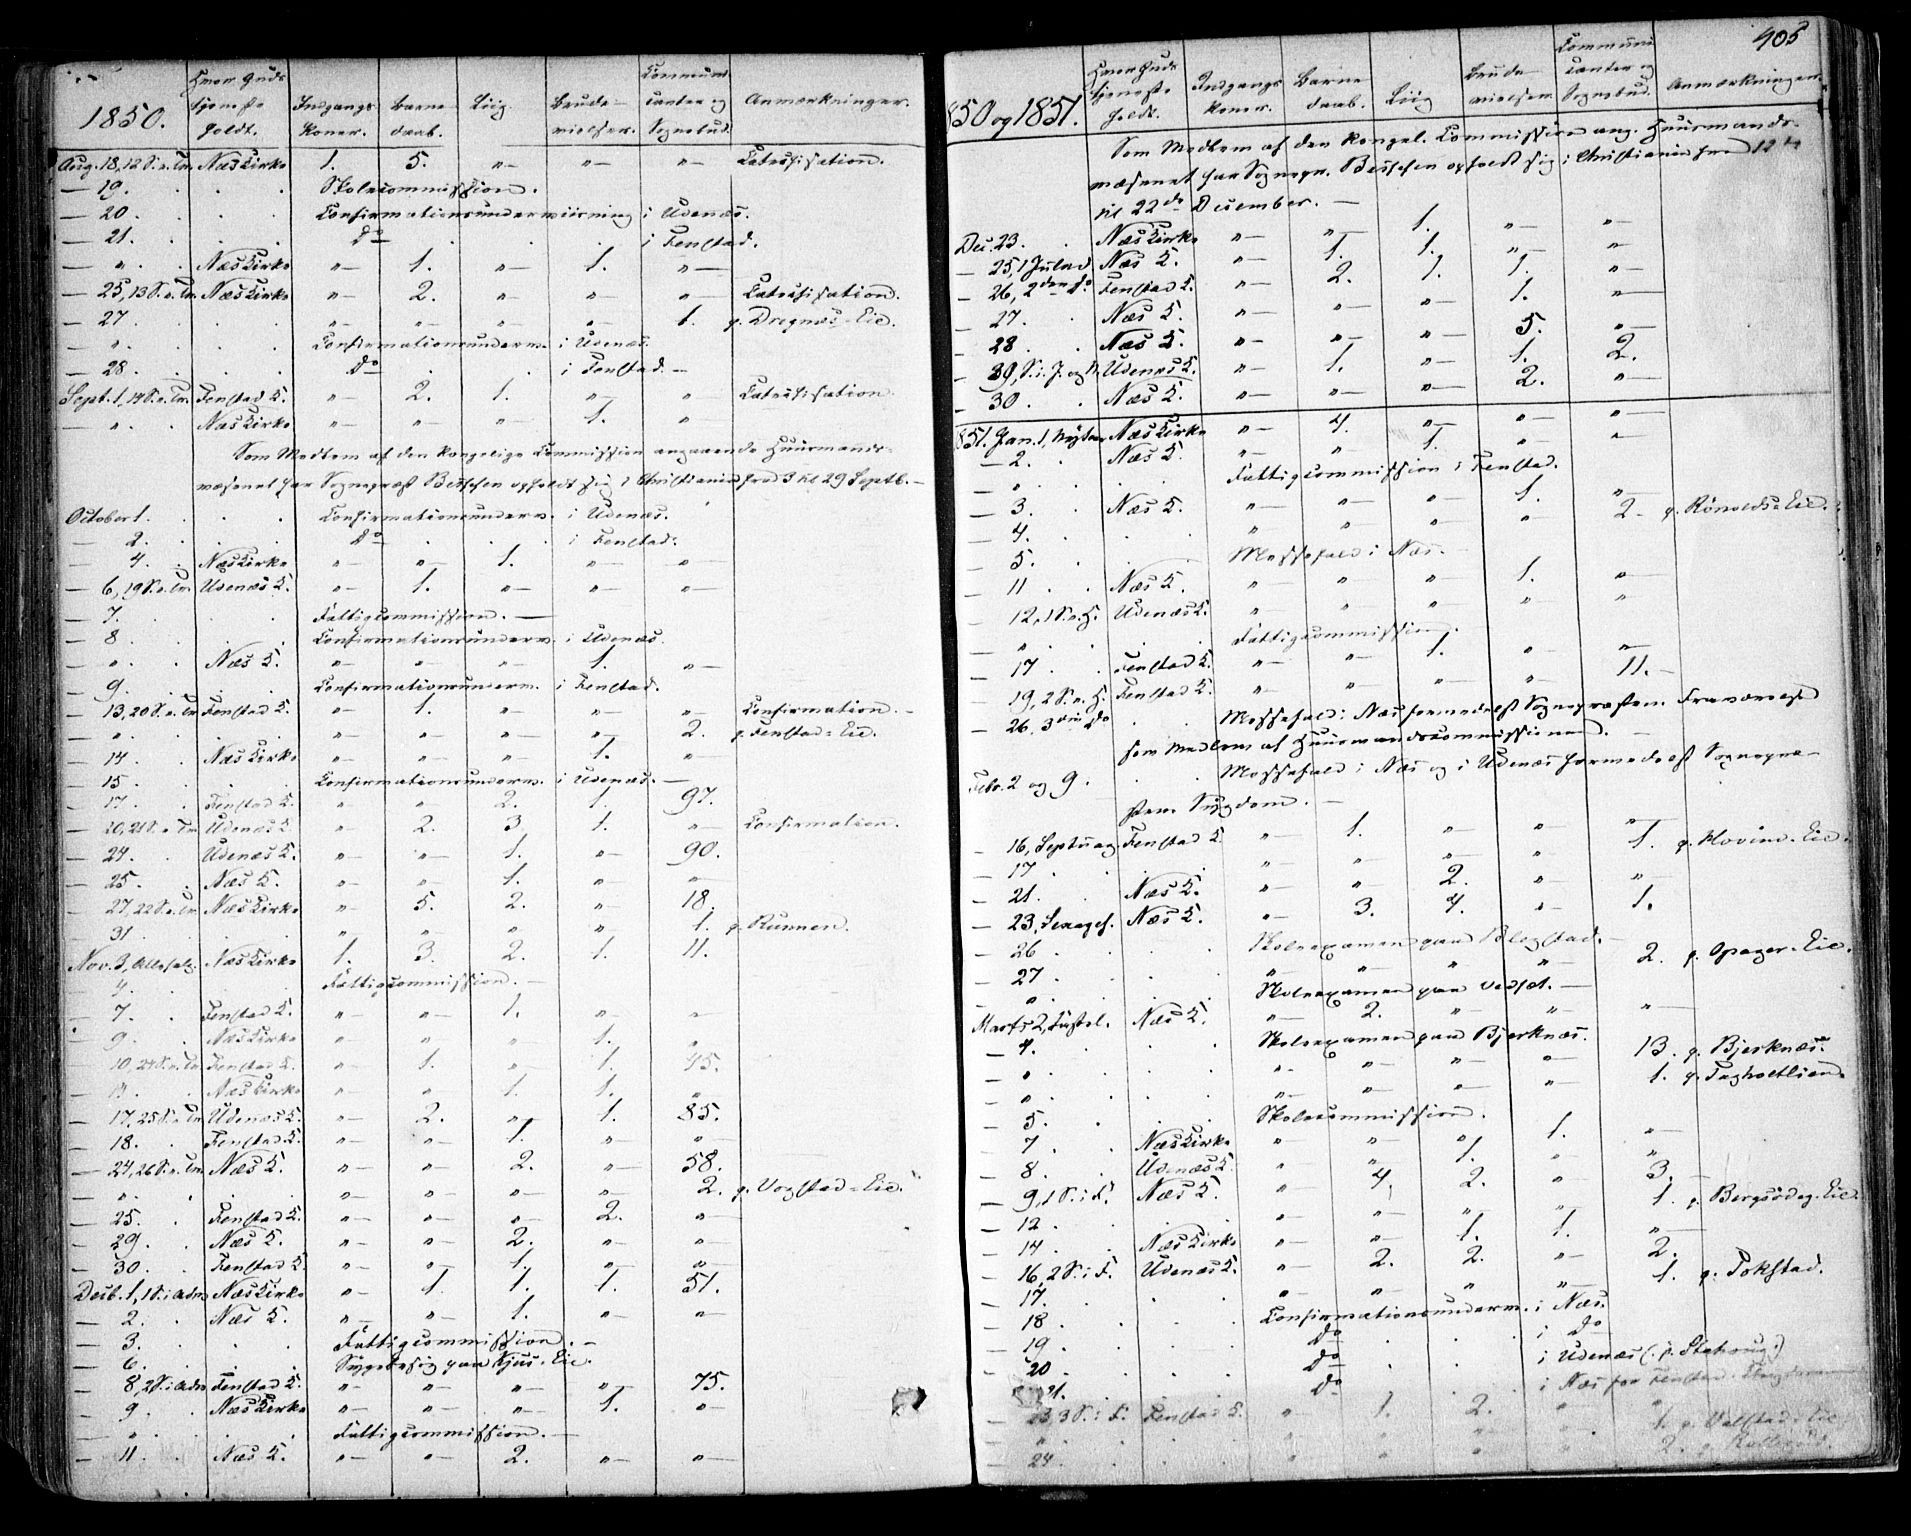 1850.
Hvor Guds tjeneste holdt.
Indgangs Koner.
Barne daab.
Liig.
Brude vielser.
Communicanter og Sognebud
Anmærkninger.
Aug. 18, 12 S. e. Tr. Næs Kirke 1. 5. „ „ „ Catechisation.
— 19. Skolecommission.
— 20. Confirmationsunderviisning i Udenæs.
— 21. Do i Fenstad.
— „ Næs Kirke „ 1. „ 1. „
— 25, 13 S. e. Tr. Næs Kirke „ 2. „ „ „ Catechisation.
— 27. „ „ „ „ 1. p. Dregnæs-Eie.
— „ Confirmationsunderv. i Udenæs.
— 28. Do i Fenstad. —
Sept. 1, 14 S. e. Tr. Fenstad K. „ 2. 1. „ „ Catechisation
— „ Næs Kirke „ „ „ 1. „
Som Medlem af den kongelige Commission angaaende Huusmands-
væsenet har Sognepræst Beichen opholdt sig i Christiania fra 3 til 29 Septb. —
October 1. Confirmationsunderv. i Udenæs.
— 2. Do i Fenstad.
— 4. Næs Kirke „ „ 1. „ „
— 6, 19 S. e. Tr. Udenæs K. „ 1. „ „ „
— 7. Fattigcommission. —
— 8. Confirmationsunderv. i Udenæs
— „ Næs K. „ „ „ 1. „
— 9. Confirmationsunderv. i Fenstad.
— 13, 20 S. e. Tr. Fenstad K. „ 1. „ „ „ Confirmation. —
— „ „ „ „ „ 2. p. Fenstad-Eie.
— 14. Næs Kirke „ „ „ 1. „
— 15. Confirmationsunderv. i Udenæs. —
— 17. Fenstad K. „ „ 2. 1. 97.
— 20, 21 S. e. Tr. Udenæs K. „ 2. 3 1. „ Confirmation.
— 24. Udenæs K. „ „ 1. „ 90.
— 25. Næs K. „ „ 1. „ „
— 27, 22 S. e. Tr. Næs Kirke „ 5. 2. „ 18.
— 31. „ „ „ „ 1. p. Runnen.
Nov. 3, Allehelg. Næs Kirke 1. 3. 2. 1. 11.
— 4. Fattigcommission. —
— 7. Fenstad K. „ „ 1. „ „
— 9. Næs Kirke „ „ „ 1. „
— 10, 24 S. e. Tr. Fenstad K. „ 1. „ 1. 45.
— 13. Næs Kirke „ „ 1. 1. „
— 17, 25 S. e. Tr. Udenæs K. „ 2. „ 1. 85.
— 18. Fenstad K. „ „ 1. „ „
— 24, 26 S. e. Tr. Næs K. „ „ 2. „ 58.
— „ „ „ „ „ 2. p. Vogstad-Eie.
— 25. Fenstad K. „ „ „ 2. „
— 29. Næs K. „ „ 2. „ „
— 30. Fenstad K. „ „ 1. „ „
Decb. 1, 1 S. i Adv. Næs Kirke „ 1. 1. 1. 51.
— 2. Næs K. „ „ 1. „ „
— 3. Fattigcommission. —
— 6. Sygebesøg paa Kjus-Eie.
— 8, 2 S. i Adv. Fenstad K. „ „ „ „ 75.
— 9. Næs Kirke „ „ „ 1. „
— „ Fattigcommission. —
— 11. Næs K. „ „ 2. „ „
405
850 og 1851.
Hvor Guds tjeneste holdt.
Indgangs koner.
Barne daab.
Liig
Brude vielser
Communicanter og Sognebud.
Anmærkninger.
Som Medlem af den kongel. Commission ang. Huusmands-
væsenet har Sognepr. Beichen opholdt sig i Christiania fra 12te
til 22de December. —
Dec. 23. Næs Kirke „ „ 1. „ „
— 25, 1 Juledag Næs K. „ 1. 1. „ „
— 26, 2den do Fenstad K. „ 2. 1. 1. „
— 27. Næs K. „ „ „ 1. „
— 28 Næs K. „ „ „ 5. „
— 29, S. i J. og N. Udenæs K. „ 1. „ 1. 2.
— 30. Næs K. „ „ „ 2. „
851. Jan. 1, Nytaar Næs Kirke „ 4. „ „ „
— 2. Næs K. „ „ 1. „ „
— „ Fattigcommission i Fenstad.
— 3. Næs K. „ „ „ 1. „
— 4. „ „ „ „ 2. p. Rønolds-Eie.
— 5. Messefald i Næs.
— 11 Næs K. „ „ „ 1. „
— 12, 1 S. e. H. Udenæs K. „ „ „ „ „
— „ Fattigcommission.
— 17 Fenstad K. „ „ 1. „ „
— 19, 2 S. e. H. Fenstad K. „ „ „ „ 11. —
— 26, 3die do Messefald i Næs formedelst Sognepræstens Fraværelse
som Medlem af Huusmandscommissionen. —
Febr. 2 og 9. Messefald i Næs og i Udenæs formedelst Sognepræ-
stens Sygdom. —
— 16, Septuag. Fenstad K. „ 1. „ „ „
— 17 „ „ „ „ 1. p. Hovind-Eie.
— 21. Næs K. „ „ 2. „ „
— 23, Sexages. Næs K. „ 3. 4. „ 1.
— 26 Skoleexamen paa Blegstad. —
— 27 „ „ „ „ 2. p. Opager-Eie.
— „ Skoleexamen paa Vedset. —
Marts 2, Fastel. Næs K. „ 2. „ „ „
— 4. Skoleexamen paa Bjerknæs.
— „ „ „ „ „ 13. p. Bjerknæs.
— „ „ „ „ „ 1. p. Fagholtlien.
— 5. Skolecommission.
— 7 Næs Kirke „ „ „ 1. „
— 8. Udenæs K. „ „ 1. „ „
— 9, 1 S. i F. Næs K. „ 4. 2. „ 3.
— 12 „ „ „ „ 1. p.
— 14 Næs Kirke „ „ 1. 1. „
— 16, 2 S. i F. Udenæs K. „ 2. 2. „ 2.
— 17. „ „ „ „ 1. p. Tokstad.
— 18 Confirmationsunderv. i Næs.
— 19 Do i Do
— 20 Do i Udenæs
21. Do i Næs for Fenstad
— 23, 3 S. i F. Fenstad K. „ 1. 2. „ „
— „ „ „ „ „ 1. p. Valstad-Eie
— 24 „ „ „ „ 2. p.